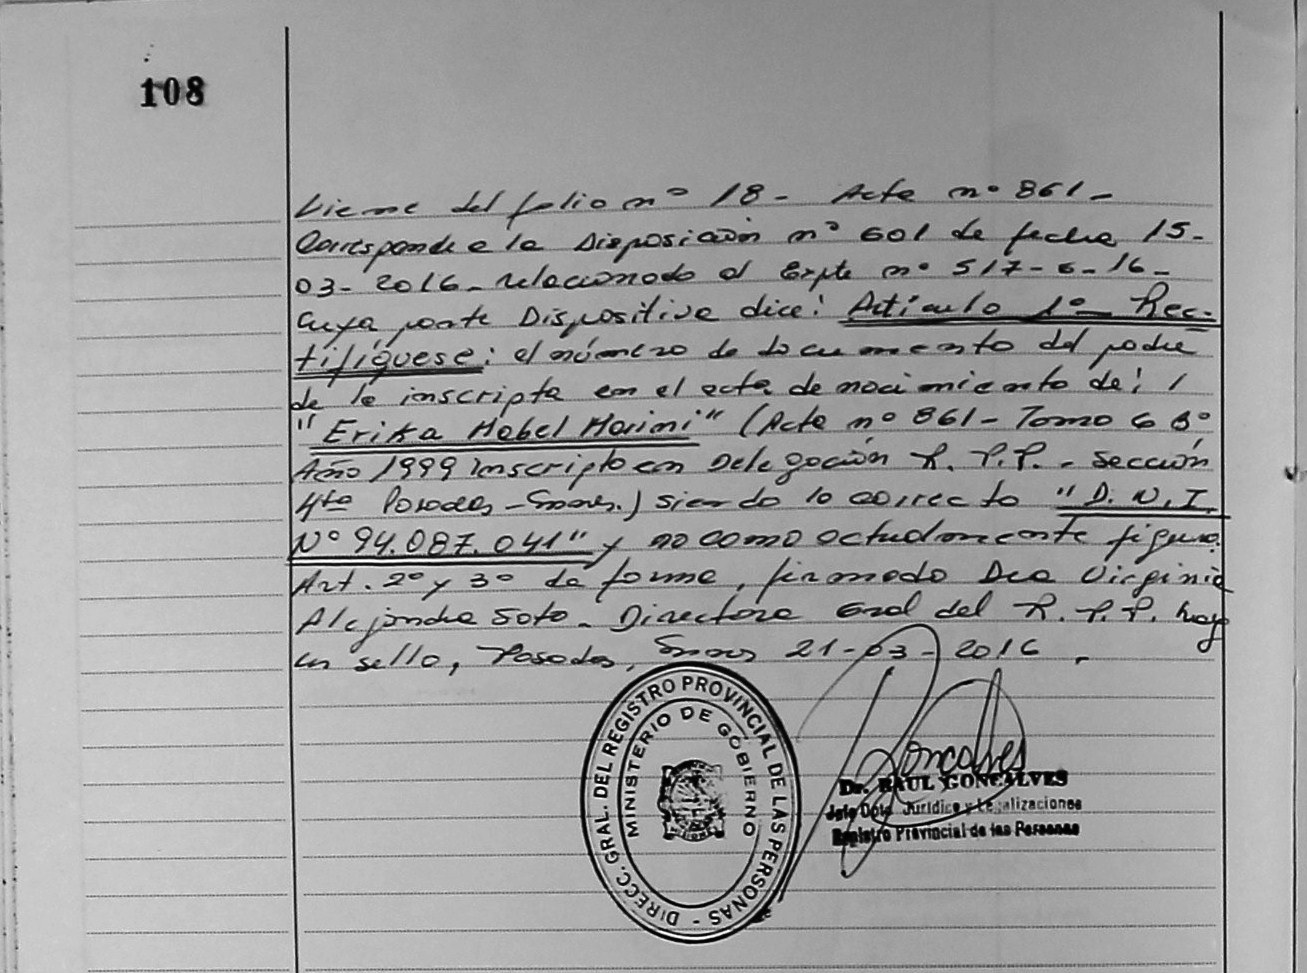 108
Viene del folio nº 18 - Acta nº 861 -
Corresponde a la Disposición nº 601 de fecha 15-
03- 2016- relacionado al Expte nº 517-6-16-
Cuya parte Dispositiva dice: Artículo 1º- Rec-
tifíquese: el número de documento del padre
de la inscripta en el acta de nacimiento de: /
"Erika Mabel Marini" (Acta nº 861 - Tomo 6 Bº
Año 1999 inscripto en Delegación R. P. P. - Sección
4ta Posadas - Mnes.) siendo lo correcto "D. N. I.
Nº 94.087.041" y no como actualmente figura.
Art. 2º y 3º de forma, firmado Dra Virginia
Alejandra Soto - Directora Gral del R. P. P. hay
un sello, Posadas, Mnes 21-03-2016.
DIRECC. GRAL. DEL REGISTRO PROVINCIAL DE LAS PERSONAS -
MINISTERIO DE GOBIERNO
Goncalves
Dr. RAUL GONCALVES
Jefe Dpto. Jurídico y Legalizaciones
Registro Provincial de las Personas